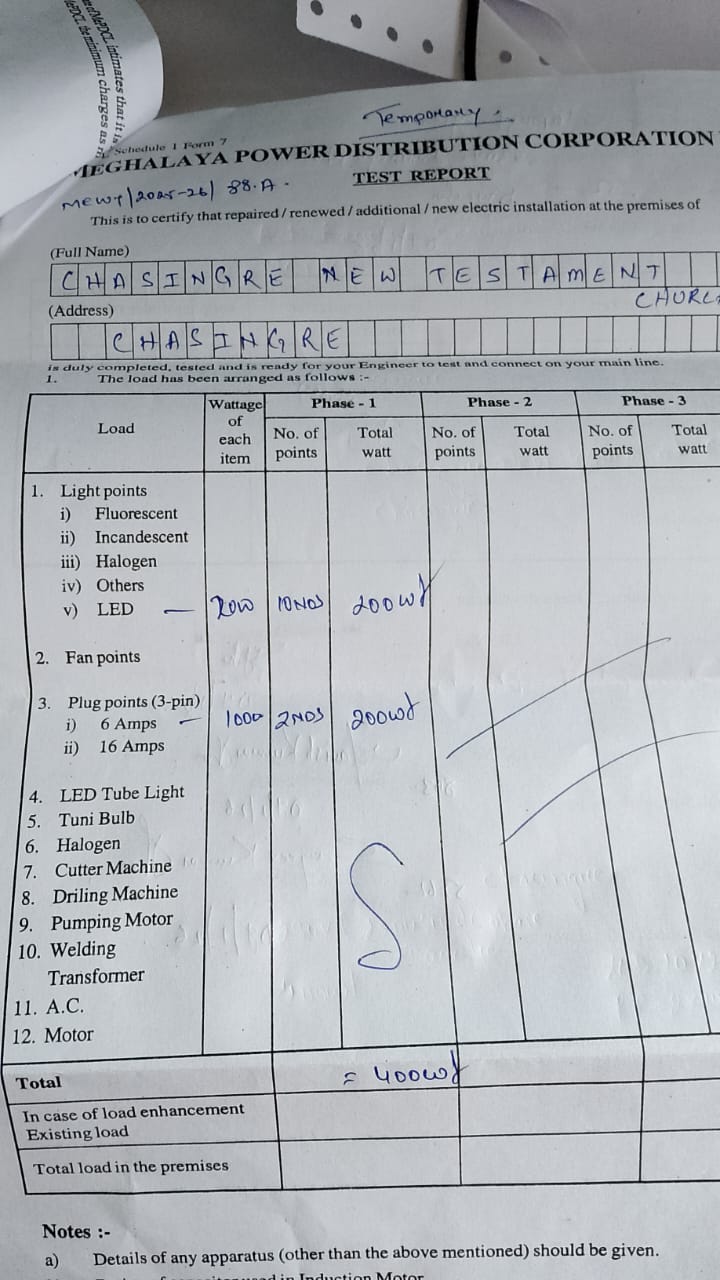 ePDCL intimates that it is
MePDCL the minimum charges as
Temporary
Schedule 1 Form 7
MEGHALAYA POWER DISTRIBUTION CORPORATION
TEST REPORT
MEWT/2025-26/ 38.A.
This is to certify that repaired / renewed / additional / new electric installation at the premises of
(Full Name)
CHASINGRE NEW TESTAMENT
CHURC
(Address)
CHASINGRE
is duly completed, tested and is ready for your Engineer to test and connect on your main line.
1. The load has been arranged as follows :-
Load Wattage of each item Phase - 1 Phase - 2 Phase - 3
No. of points Total watt No. of points Total watt No. of points Total watt
1. Light points
i) Fluorescent
ii) Incandescent
iii) Halogen
iv) Others
v) LED — 20W 10NOS 200wt
2. Fan points
3. Plug points (3-pin)
i) 6 Amps — 100W 2NOS 200wt
ii) 16 Amps
4. LED Tube Light
5. Tuni Bulb
6. Halogen
7. Cutter Machine
8. Driling Machine
9. Pumping Motor
10. Welding
Transformer
11. A.C.
12. Motor
Total = 400wt
In case of load enhancement
Existing load
Total load in the premises
Notes :-
a) Details of any apparatus (other than the above mentioned) should be given.
used in Induction Motor